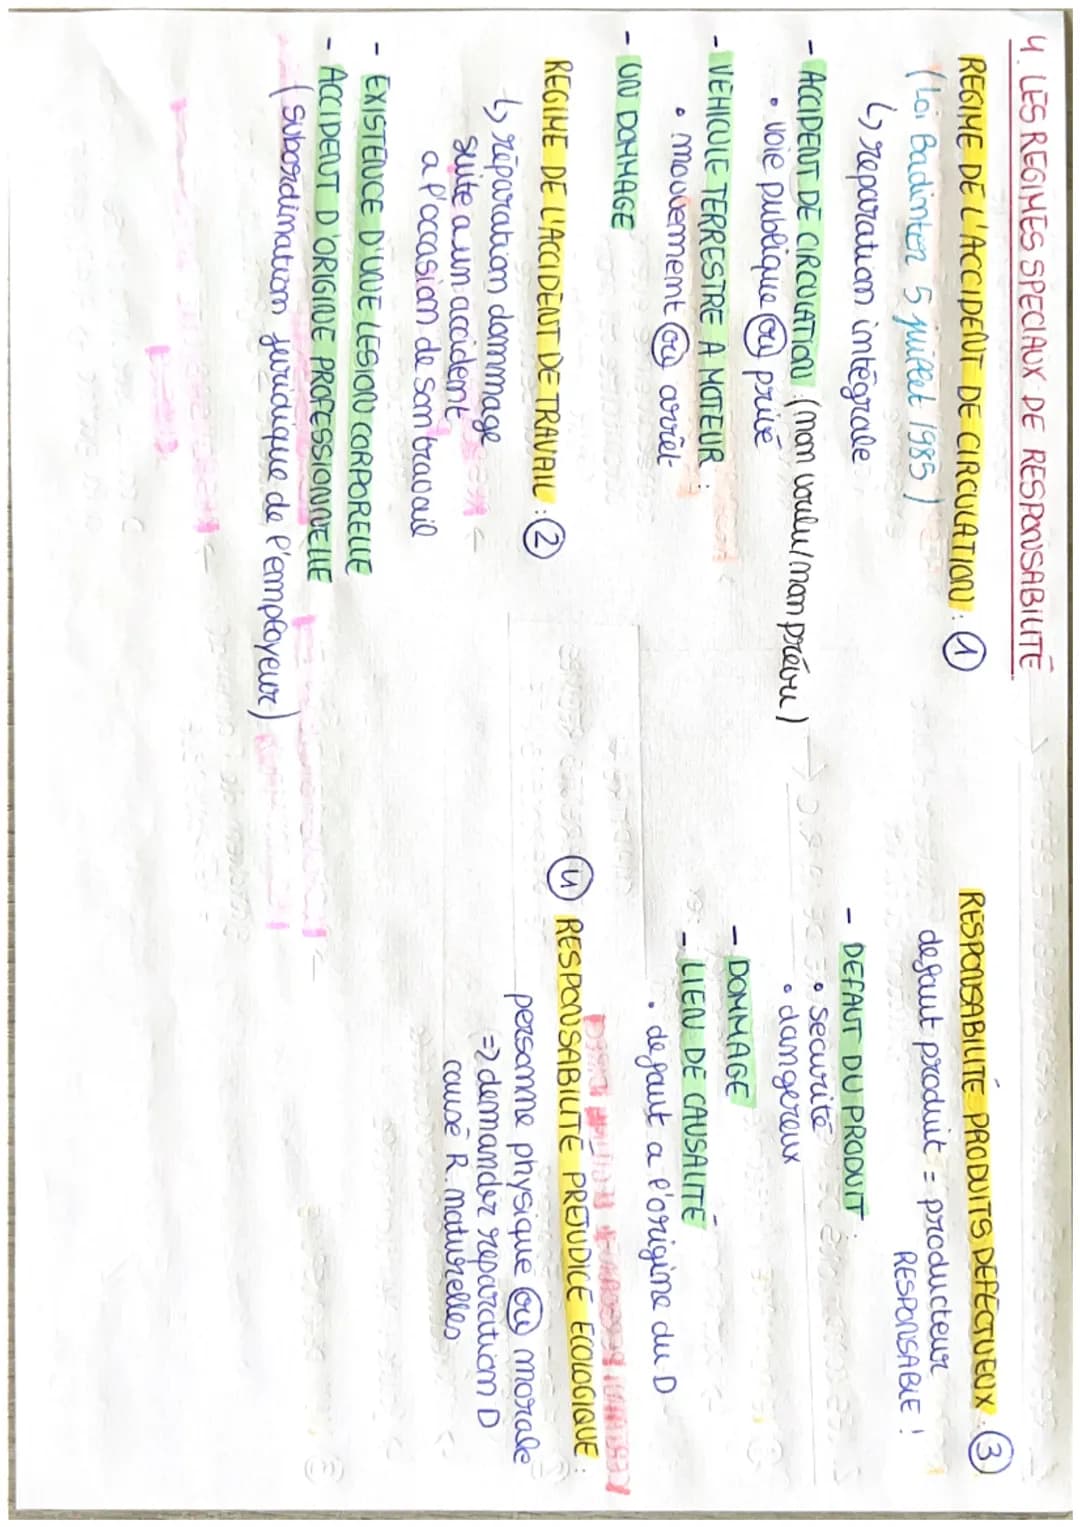 4. LES REGIMES SPECIAUX DE RESPONSABILITÉ
REGIME DE L'ACCIDENT DE CIRCULATION : 1
(Loi Badinter 5 juillet 1985)
↳ reparation intégrale
- ACCIDENT DE CIRCULATION : (non voulu/non prévu)
• voie publique ou privé
- VEHICULE TERRESTRE A MOTEUR :
• mouvement ou arrêt
- UN DOMMAGE
REGIME DE L'ACCIDENT DE TRAVAIL : 2
↳ réparation dommage
suite a un accident
a l'occasion de son travail
- EXISTENCE D'UNE LESION CORPORELLE
- ACCIDENT D'ORIGINE PROFESSIONNELLE
(subordination juridique de l'employeur)
RESPONSABILITÉ PRODUITS DEFECTUEUX : 3
defaut produit = producteur
RESPONSABLE !
- DEFAUT DU PRODUIT :
• sécurité
• dangereux
- DOMMAGE
- LIEN DE CAUSALITÉ
• defaut a l'origine du D
4 RESPONSABILITÉ PREJUDICE ECOLOGIQUE :
personne physique ou morale
=> demander reparation D
causé R. naturelles